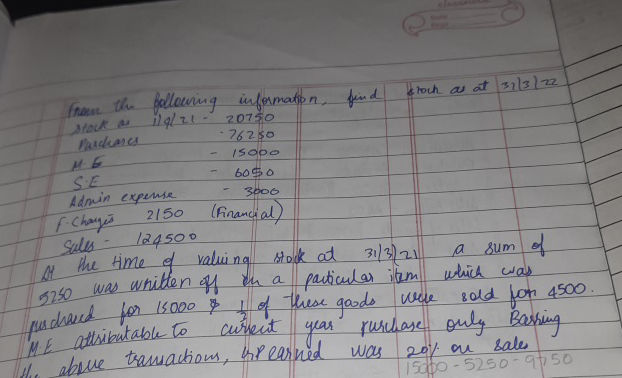 From the following information, find stock as at 31/3/22
Stock as 1/4/21 - 20750
Purchases - 76250
M.E - 15000
S.E - 6050
Admin expense - 3000
F. Charges 2150 (Financial)
Sales - 124500
At the time of valuing stock at 31/3/21 a sum of
5250 was written off on a particular item which was
purchased for 15000 & 1/2 of these goods were sold for 4500.
M E attributable to current year purchase only Barring
the above transactions, GP earned was 20% on sales
15000-5250-9750